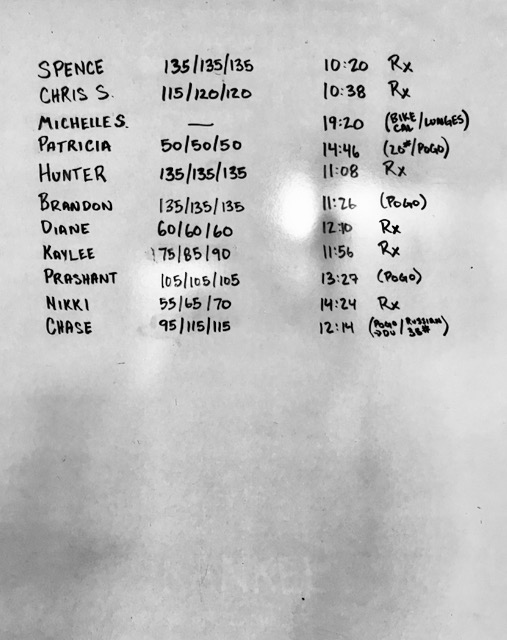 SPENCE 135/135/135 10:20 Rx
CHRIS S. 115/120/120 10:38 Rx
MICHELLE S. — 19:20 (BIKE CAL/LUNGES)
PATRICIA 50/50/50 14:46 (20#/POGO)
HUNTER 135/135/135 11:08 Rx
BRANDON 135/135/135 11:26 (POGO)
DIANE 60/60/60 12:10 Rx
KAYLEE 75/85/90 11:56 Rx
PRASHANT 105/105/105 13:27 (POGO)
NIKKI 55/65/70 14:24 Rx
CHASE 95/115/115 12:14 (POGO →DU/RUSSIAN 35#)